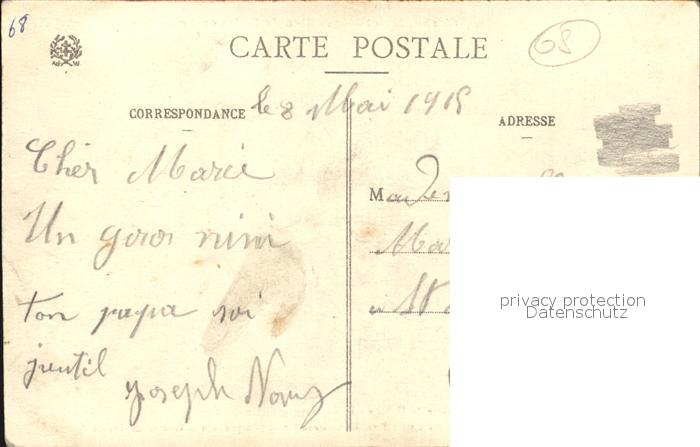 68
CARTE POSTALE
68
CORRESPONDANCE le 8 Mai 1915
ADRESSE
Cher Marie
Un gros mimi
ton papa soi
jentil
Joseph
Made
Mar
a
privacy protection
Datenschutz